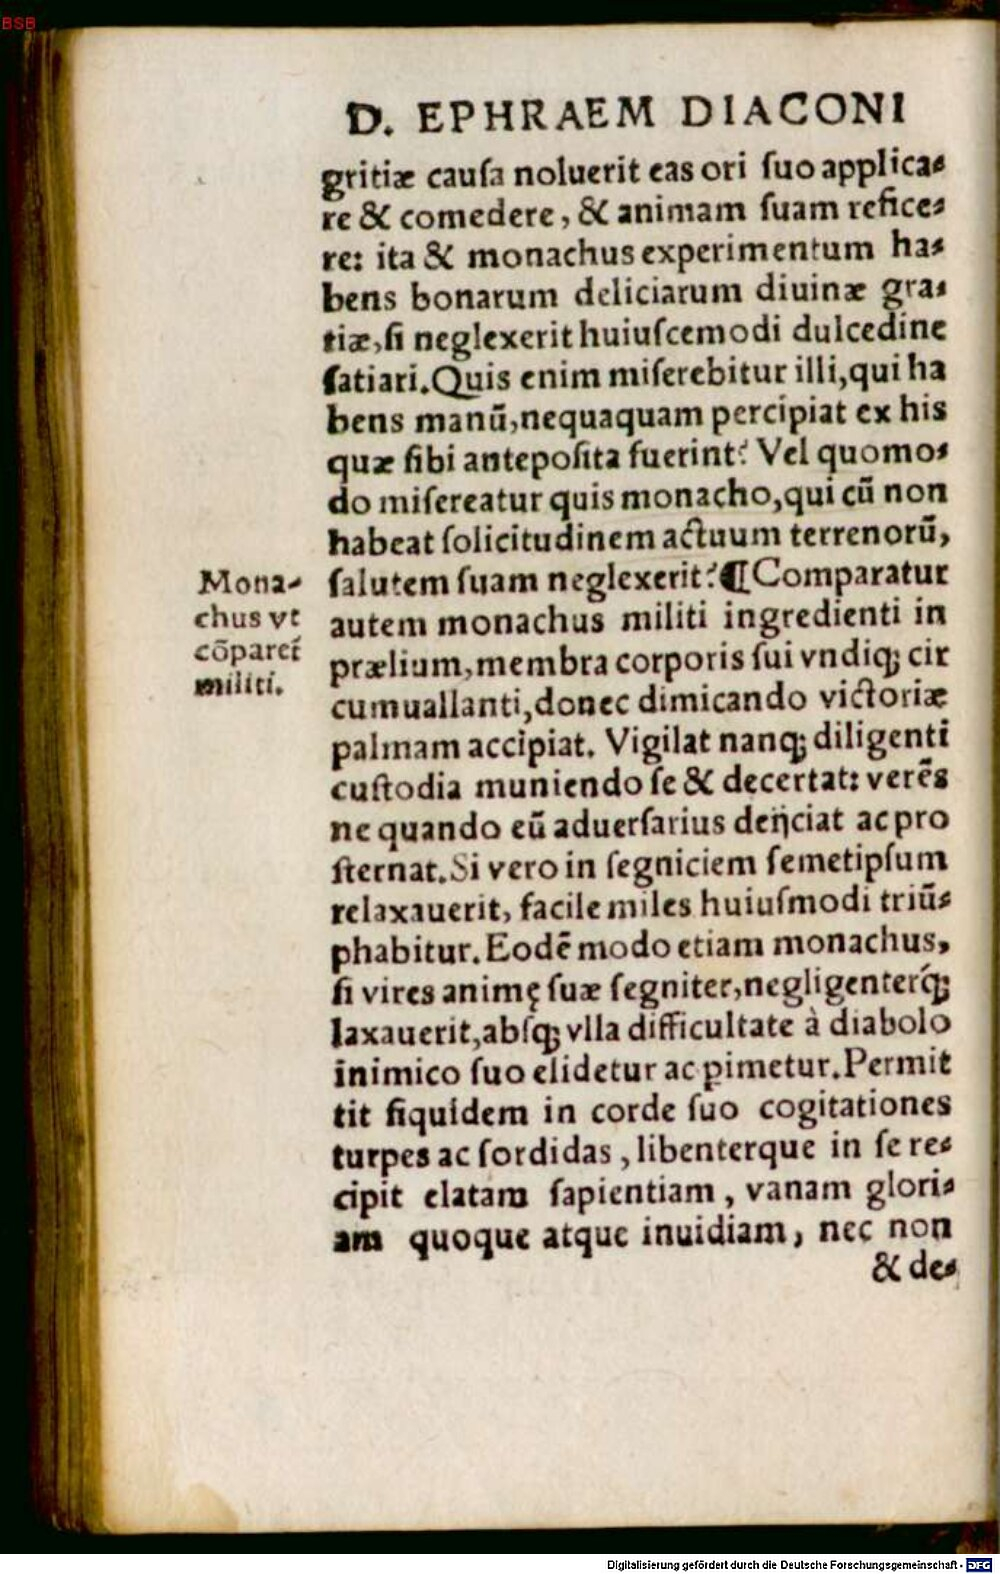 BSB
D. EPHRAEM DIACONI
gritiæ cauſa noluerit eas ori ſuo applica⸗
re & comedere, & animam ſuam refice⸗
re: ita & monachus experimentum ha⸗
bens bonarum deliciarum diuinæ gra⸗
tiæ, ſi neglexerit huiuſcemodi dulcedine
ſatiari. Quis enim miſerebitur illi, qui ha
bens manū, nequaquam percipiat ex his
quæ ſibi antepoſita fuerint? Vel quomo⸗
do miſereatur quis monacho, qui cū non
habeat ſolicitudinem actuum terrenorū,
ſalutem ſuam neglexerit? ¶ Comparatur
autem monachus militi ingredienti in
prælium, membra corporis ſui vndiq; cir
cumuallanti, donec dimicando victoriæ
palmam accipiat. Vigilat nanq; diligenti
cuſtodia muniendo ſe & decertat: verēs
ne quando eū aduerſarius deijciat ac pro
ſternat. Si vero in ſegniciem ſemetipſum
relaxauerit, facile miles huiuſmodi triū⸗
phabitur. Eodē modo etiam monachus,
ſi vires animę ſuæ ſegniter, negligenterq́;
laxauerit, abſq; vlla difficultate à diabolo
inimico ſuo elidetur ac pimetur. Permit
tit ſiquidem in corde ſuo cogitationes
turpes ac ſordidas, libenterque in ſe re⸗
cipit elatam ſapientiam, vanam glori⸗
am quoque atque inuidiam, nec non
& de⸗
Mona⸗
chus vt
cōparet́
militi.
Digitalisierung gefördert durch die Deutsche Forschungsgemeinschaft - DFG